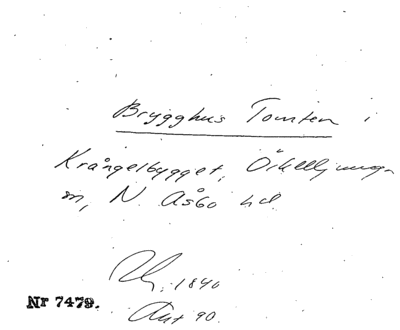 Brygghus Tomten i
Krångelbygget, Örkelljunga
sn, N. Åsbo hd.
1840
Nr 7479.
90.